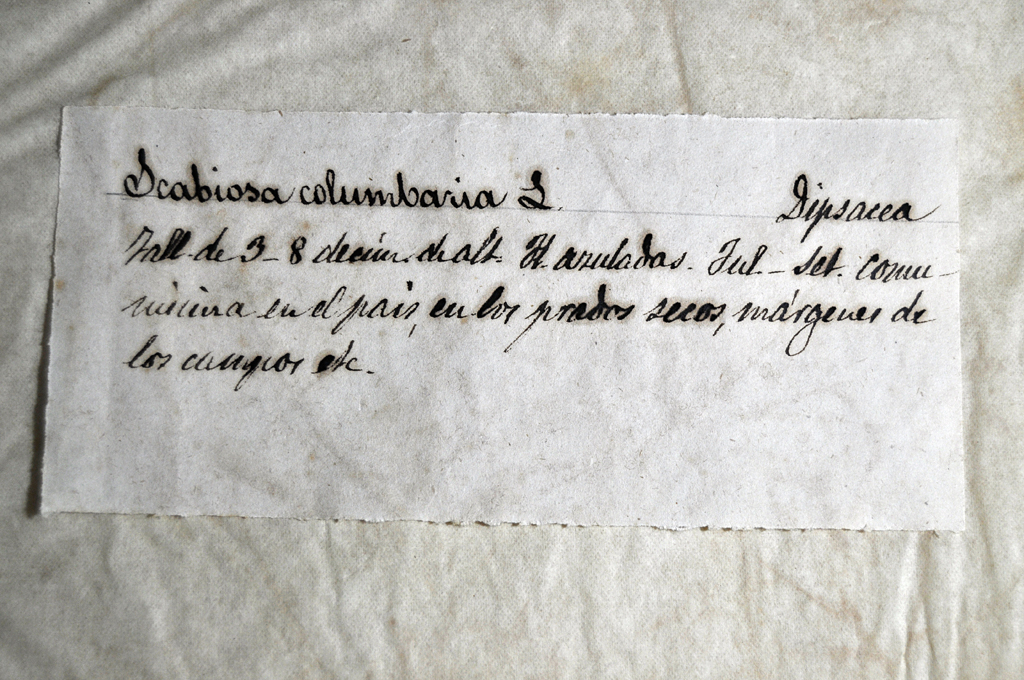 Scabiosa columbaria L. Dipsacea
Tall. de 3-8 decim. de alt. Fl. azuladas. Jul-set. comu-
nísima en el pais, en los prados secos, márgenes de
los campos etc.